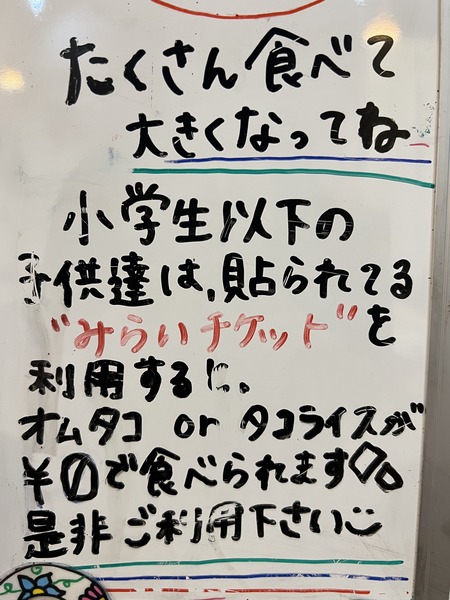 たくさん食べて
大きくなってね
小学生以下の
子供達は、貼られてる
"みらいチケット"を
利用すると。
オムタコ or タコライスが
¥0で食べられます
是非ご利用下さい